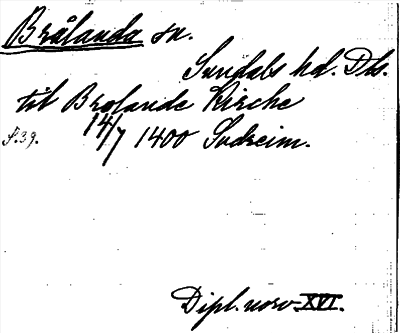 Brålanda sn.
Sundals hd. Dls.
til Brolande Kirche
S.39. 14/7 1400 Sudreim.
Dipl. norv XVI.